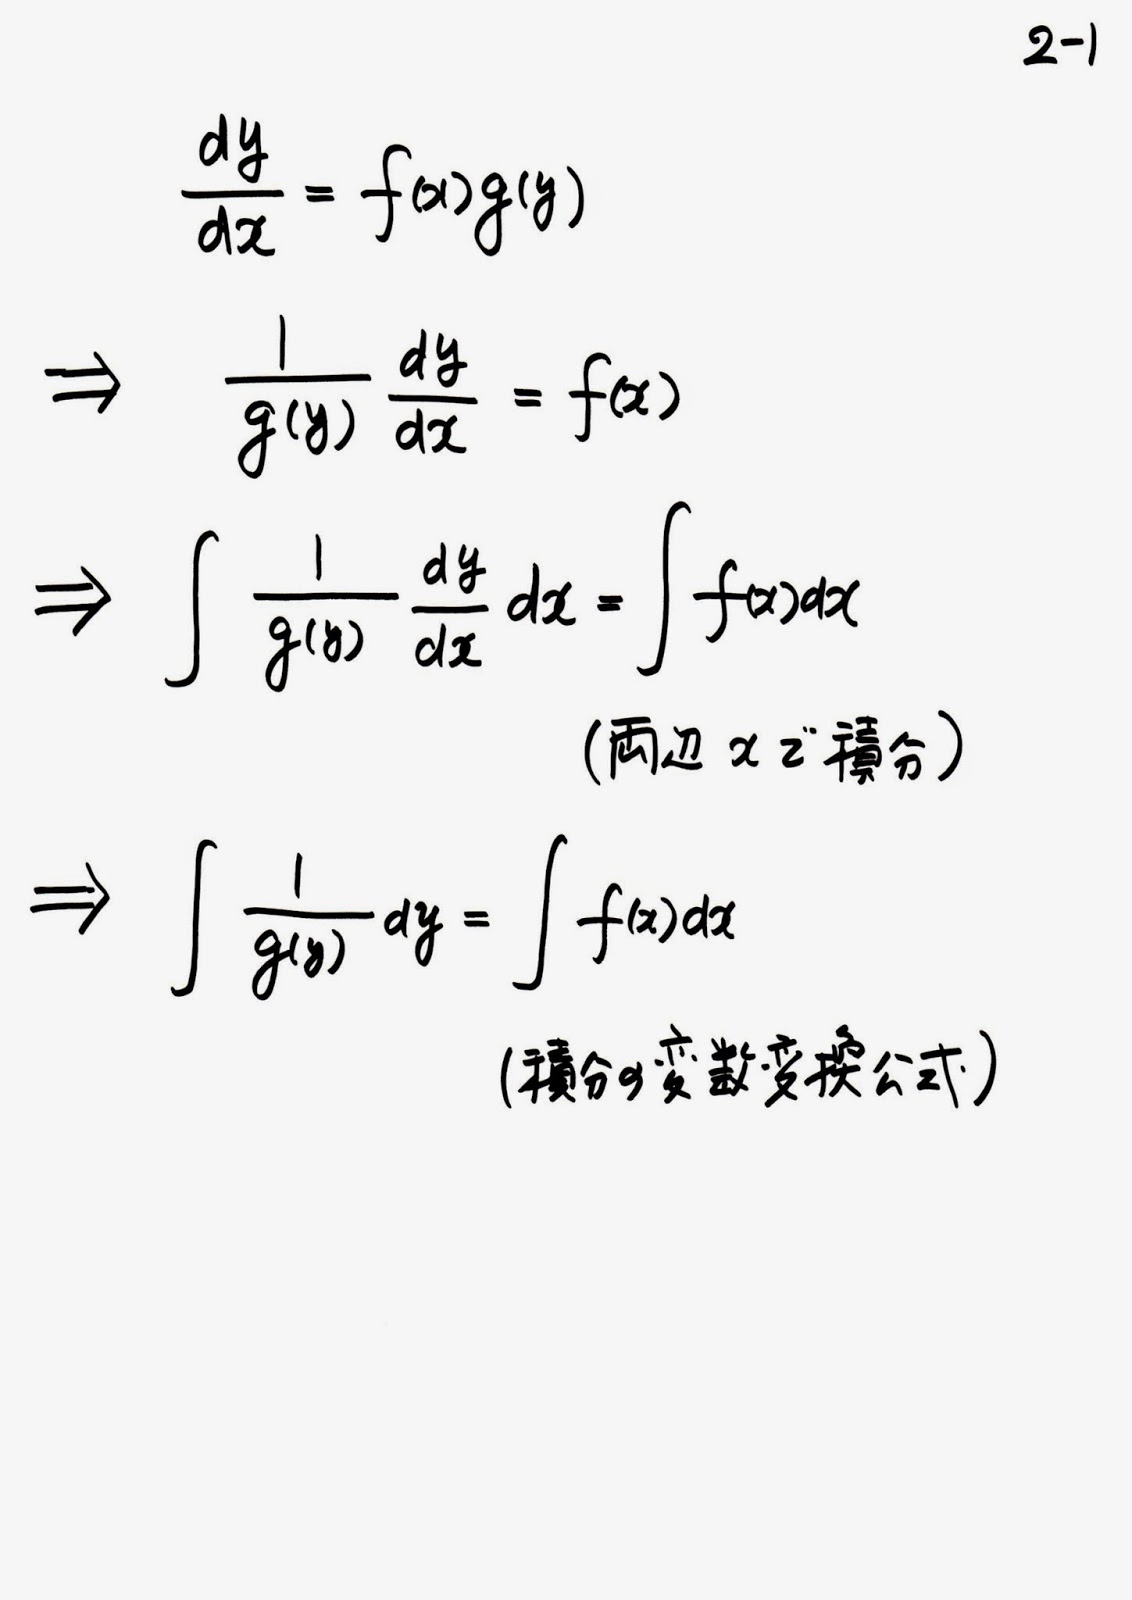 2-1
dy/dx = f(x)g(y)
⇒ 1/g(y) dy/dx = f(x)
⇒ ∫ 1/g(y) dy/dx dx = ∫ f(x)dx
(両辺 x で積分)
⇒ ∫ 1/g(y) dy = ∫ f(x)dx
(積分の変数変換公式)